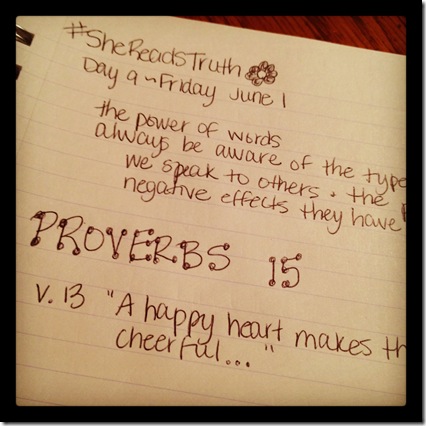 #SheReadsTruth
Day 9 ~ Friday June 1
the power of words
always be aware of the type
we speak to others + the
negative effects they have
PROVERBS 15
v. 13 "A happy heart makes th
cheerful..."